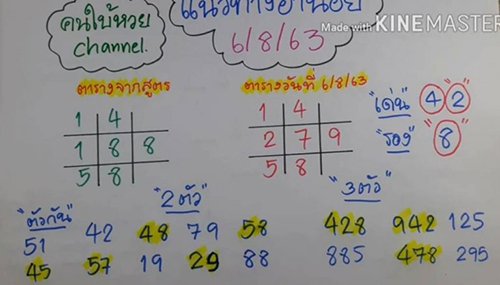 คนใบ้หวย
Channel.
แนวทางฮานอย
6/8/63
Made with KINEMASTER
ตารางจากสูตร
1 4
1 8 8
5 8
ตารางวันที่ 6/8/63
1 4
2 7 9
5 8
"เด่น" "4" "2"
"รอง" "8"
"ตัวกัน" "2ตัว" "3ตัว"
51 42 48 79 58 428 942 125
45 57 19 29 88 885 478 295